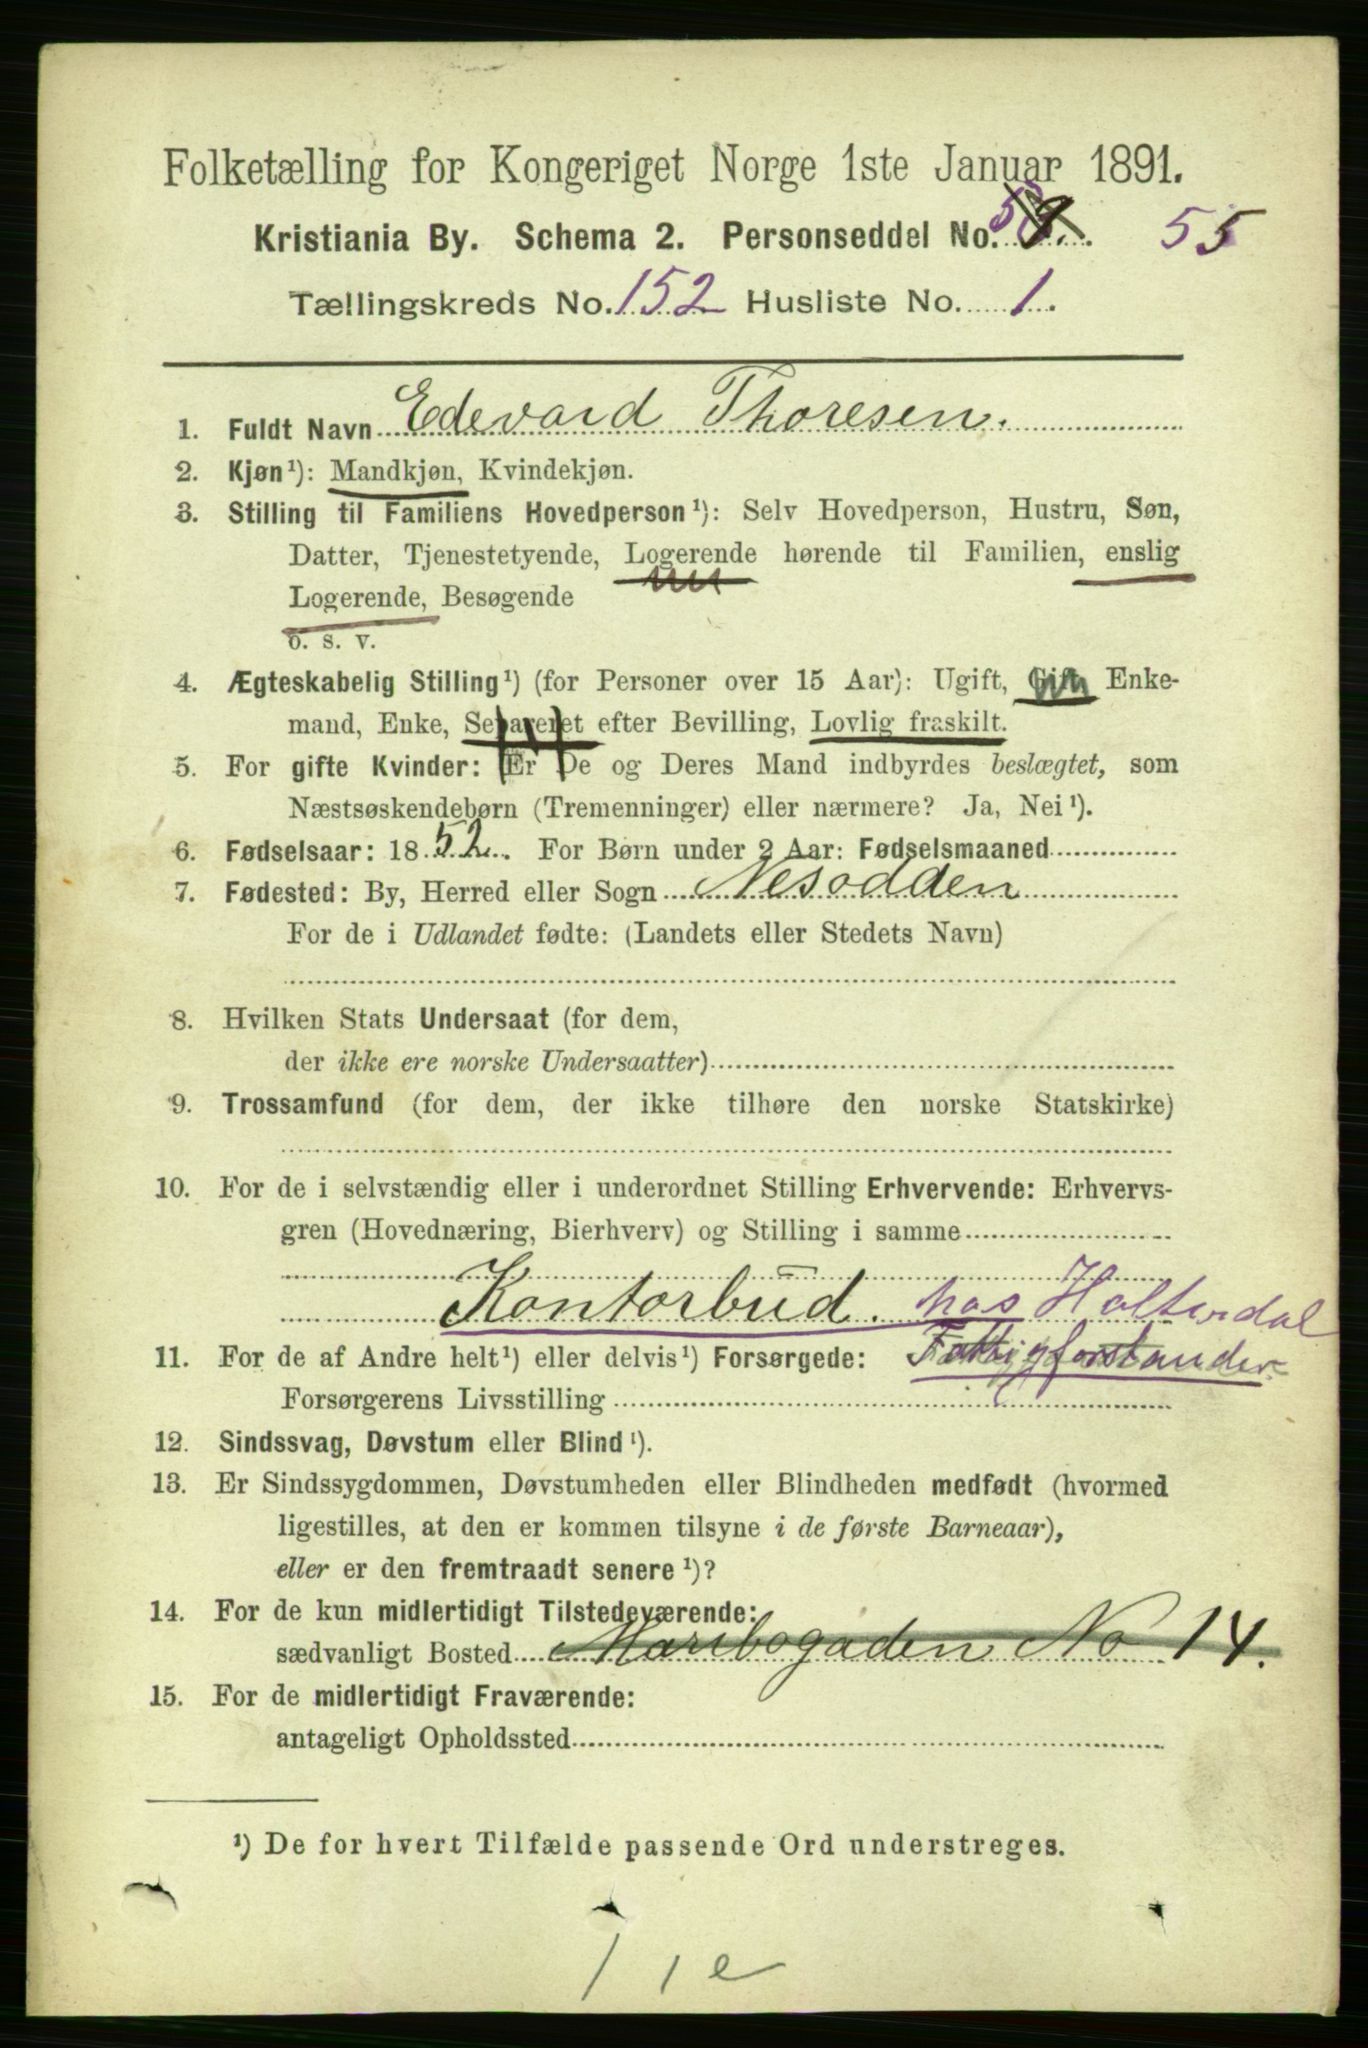 Folketælling for Kongeriget Norge 1ste Januar 1891.
Kristiania By. Schema 2. Personseddel No. 55
Tællingskreds No. 152 Husliste No. 1.
1. Fuldt Navn Edevard Thoresen.
2. Kjøn¹): Mandkjøn, Kvindekjøn.
3. Stilling til Familiens Hovedperson¹): Selv Hovedperson, Hustru, Søn,
Datter, Tjenestetyende, Logerende hørende til Familien, enslig
Logerende, Besøgende
o. s. v.
4. Ægteskabelig Stilling¹) (for Personer over 15 Aar): Ugift, Gift, Enke-
mand, Enke, Separeret efter Bevilling, Lovlig fraskilt.
5. For gifte Kvinder: Er De og Deres Mand indbyrdes beslægtet, som
Næstsøskendebørn (Tremenninger) eller nærmere? Ja, Nei¹).
6. Fødselsaar: 1852. For Børn under 2 Aar: Fødselsmaaned
7. Fødested: By, Herred eller Sogn Nesodden
For de i Udlandet fødte: (Landets eller Stedets Navn)
8. Hvilken Stats Undersaat (for dem,
der ikke ere norske Undersaatter)
9. Trossamfund (for dem, der ikke tilhøre den norske Statskirke)
10. For de i selvstændig eller i underordnet Stilling Erhvervende: Erhvervs-
gren (Hovednæring, Bierhverv) og Stilling i samme
Kontorbud. hos Halterdal
Fattigforstander
11. For de af Andre helt¹) eller delvis¹) Forsørgede:
Forsørgerens Livsstilling
12. Sindssvag, Døvstum eller Blind¹).
13. Er Sindssygdommen, Døvstumheden eller Blindheden medfødt (hvormed
ligestilles, at den er kommen tilsyne i de første Barneaar),
eller er den fremtraadt senere¹)?
14. For de kun midlertidigt Tilstedeværende:
sædvanligt Bosted Maribogaden No 14.
15. For de midlertidigt Fraværende:
antageligt Opholdssted
¹) De for hvert Tilfælde passende Ord understreges.